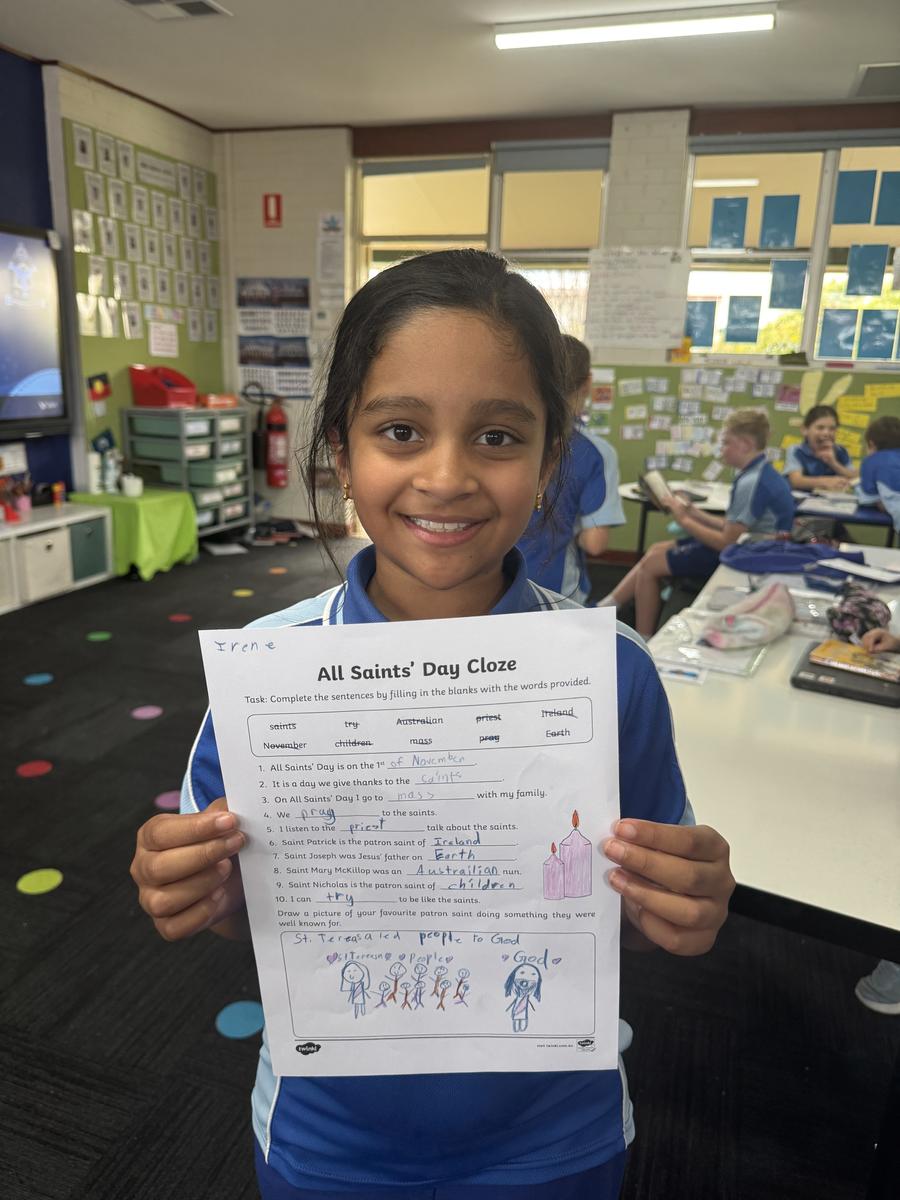 Irene
All Saints' Day Cloze
Task: Complete the sentences by filling in the blanks with the words provided.
saints try Australian priest Ireland
November children mass pray Earth
1. All Saints' Day is on the 1st of November.
2. It is a day we give thanks to the saints.
3. On All Saints' Day I go to mass with my family.
4. We pray to the saints.
5. I listen to the priest talk about the saints.
6. Saint Patrick is the patron saint of Ireland.
7. Saint Joseph was Jesus' father on Earth.
8. Saint Mary McKillop was an Austrailian nun.
9. Saint Nicholas is the patron saint of children.
10. I can try to be like the saints.
Draw a picture of your favourite patron saint doing something they were
well known for.
St. Tereasa led people to God
St Tereasa People God
twinkl
visit twinkl.com.au
twinkl